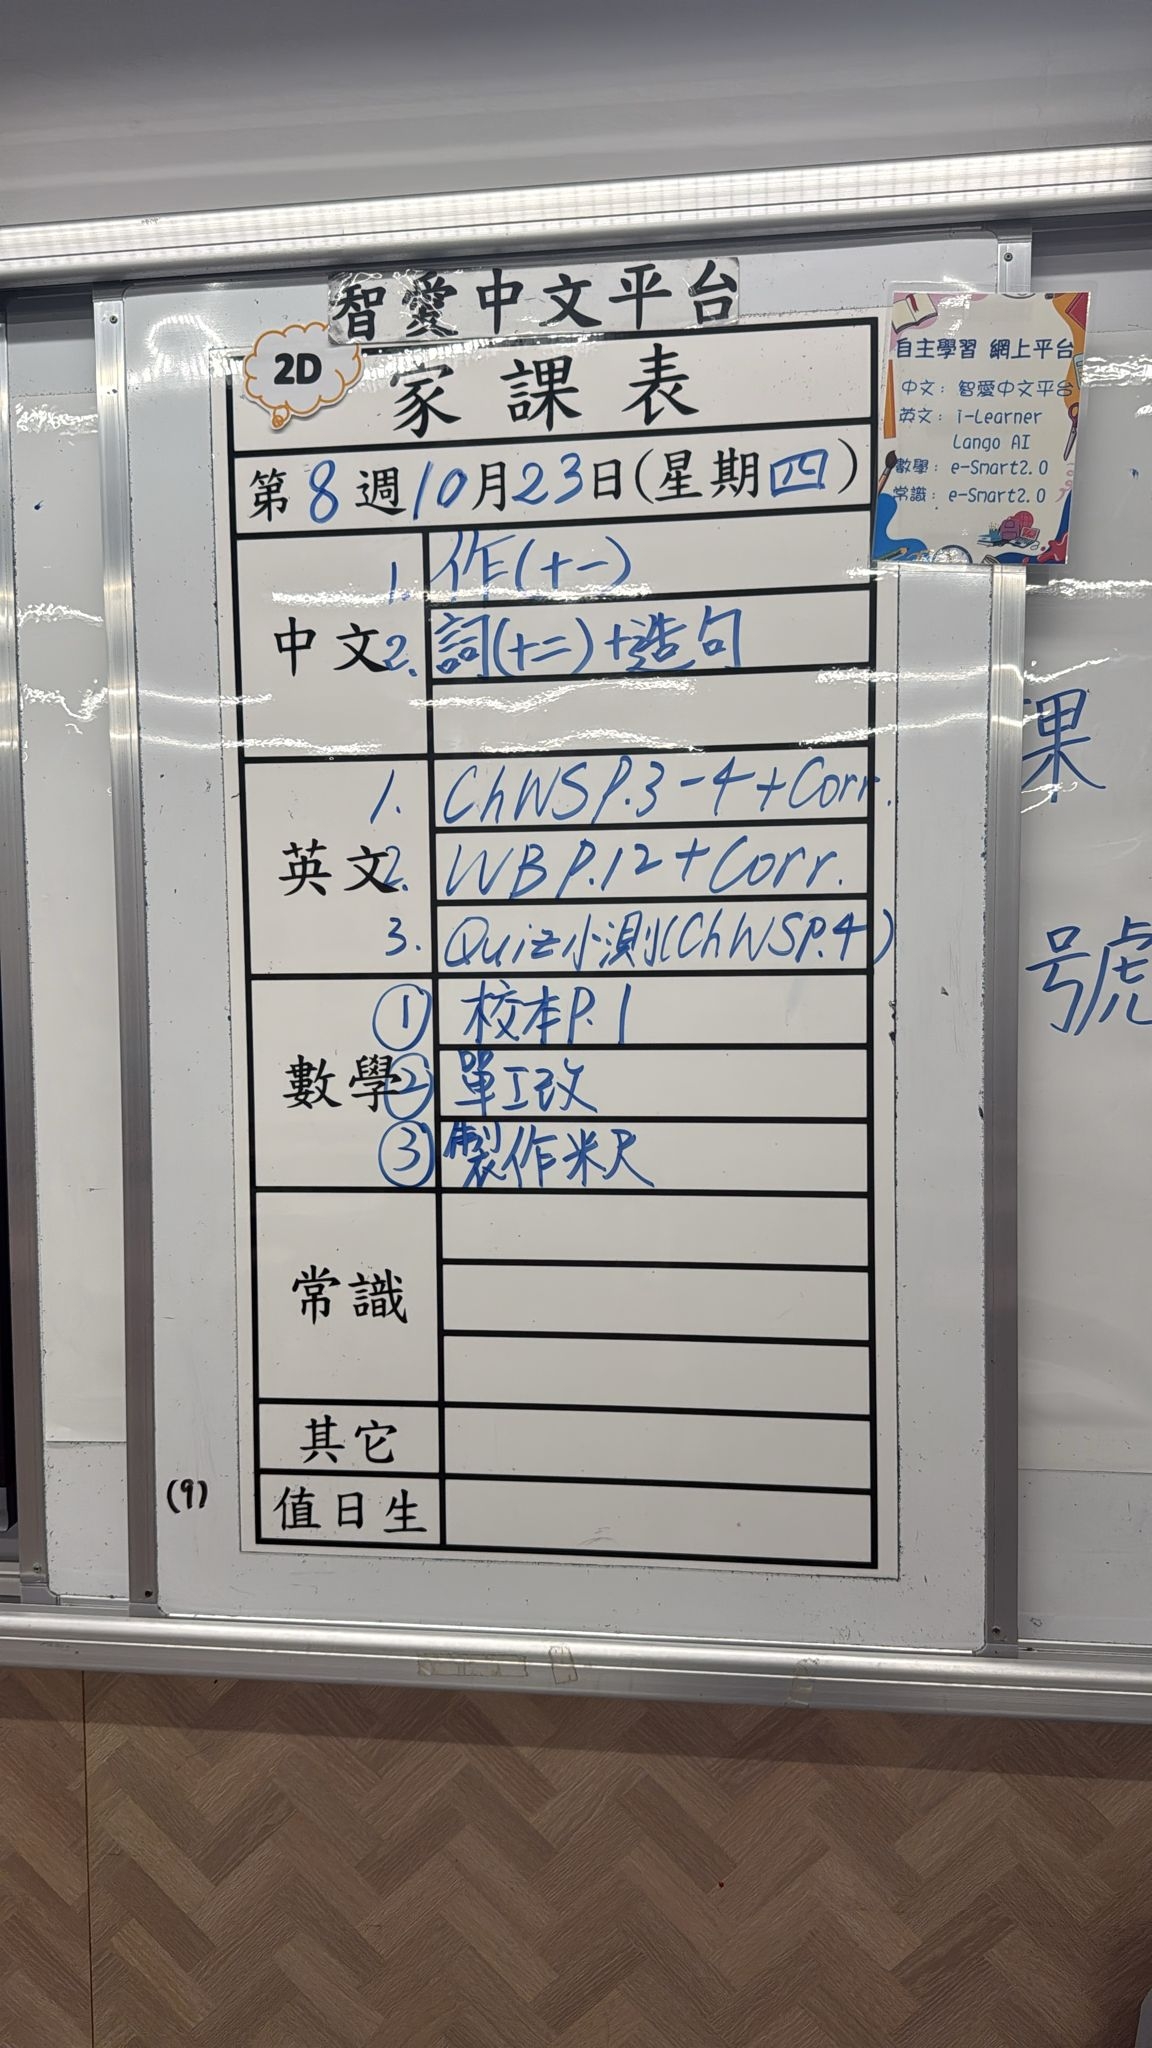 智愛中文平台
2D
家課表
第8週10月23日(星期四)
中文
1. 作(十一)
2. 詞(十二)+造句
英文
1. ChWS P.3-4+Corr.
2. WB P.12+Corr.
3. Quiz小測(ChWSP.4)
數學
① 校本P.1
② 單工改
③ 製作米尺
常識
其它
值日生
(9)
自主學習 網上平台
中文: 智愛中文平台
英文: i-Learner
Lango AI
數學: e-Smart2.0
常識: e-Smart2.0
課
號